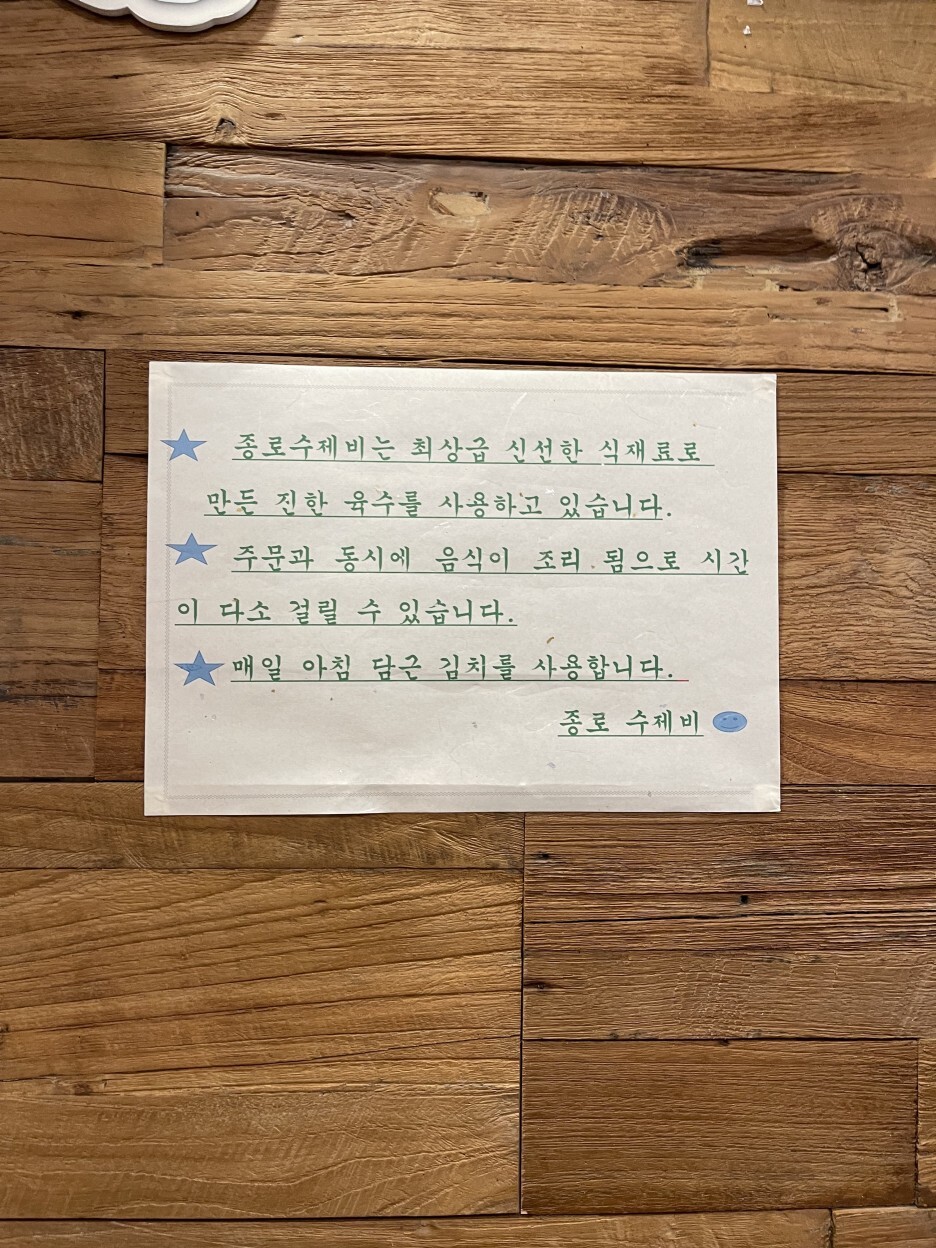 종로수제비는 최상급 신선한 식재료로
만든 진한 육수를 사용하고 있습니다.
주문과 동시에 음식이 조리 됨으로 시간
이 다소 걸릴 수 있습니다.
매일 아침 담근 김치를 사용합니다.
종로 수제비